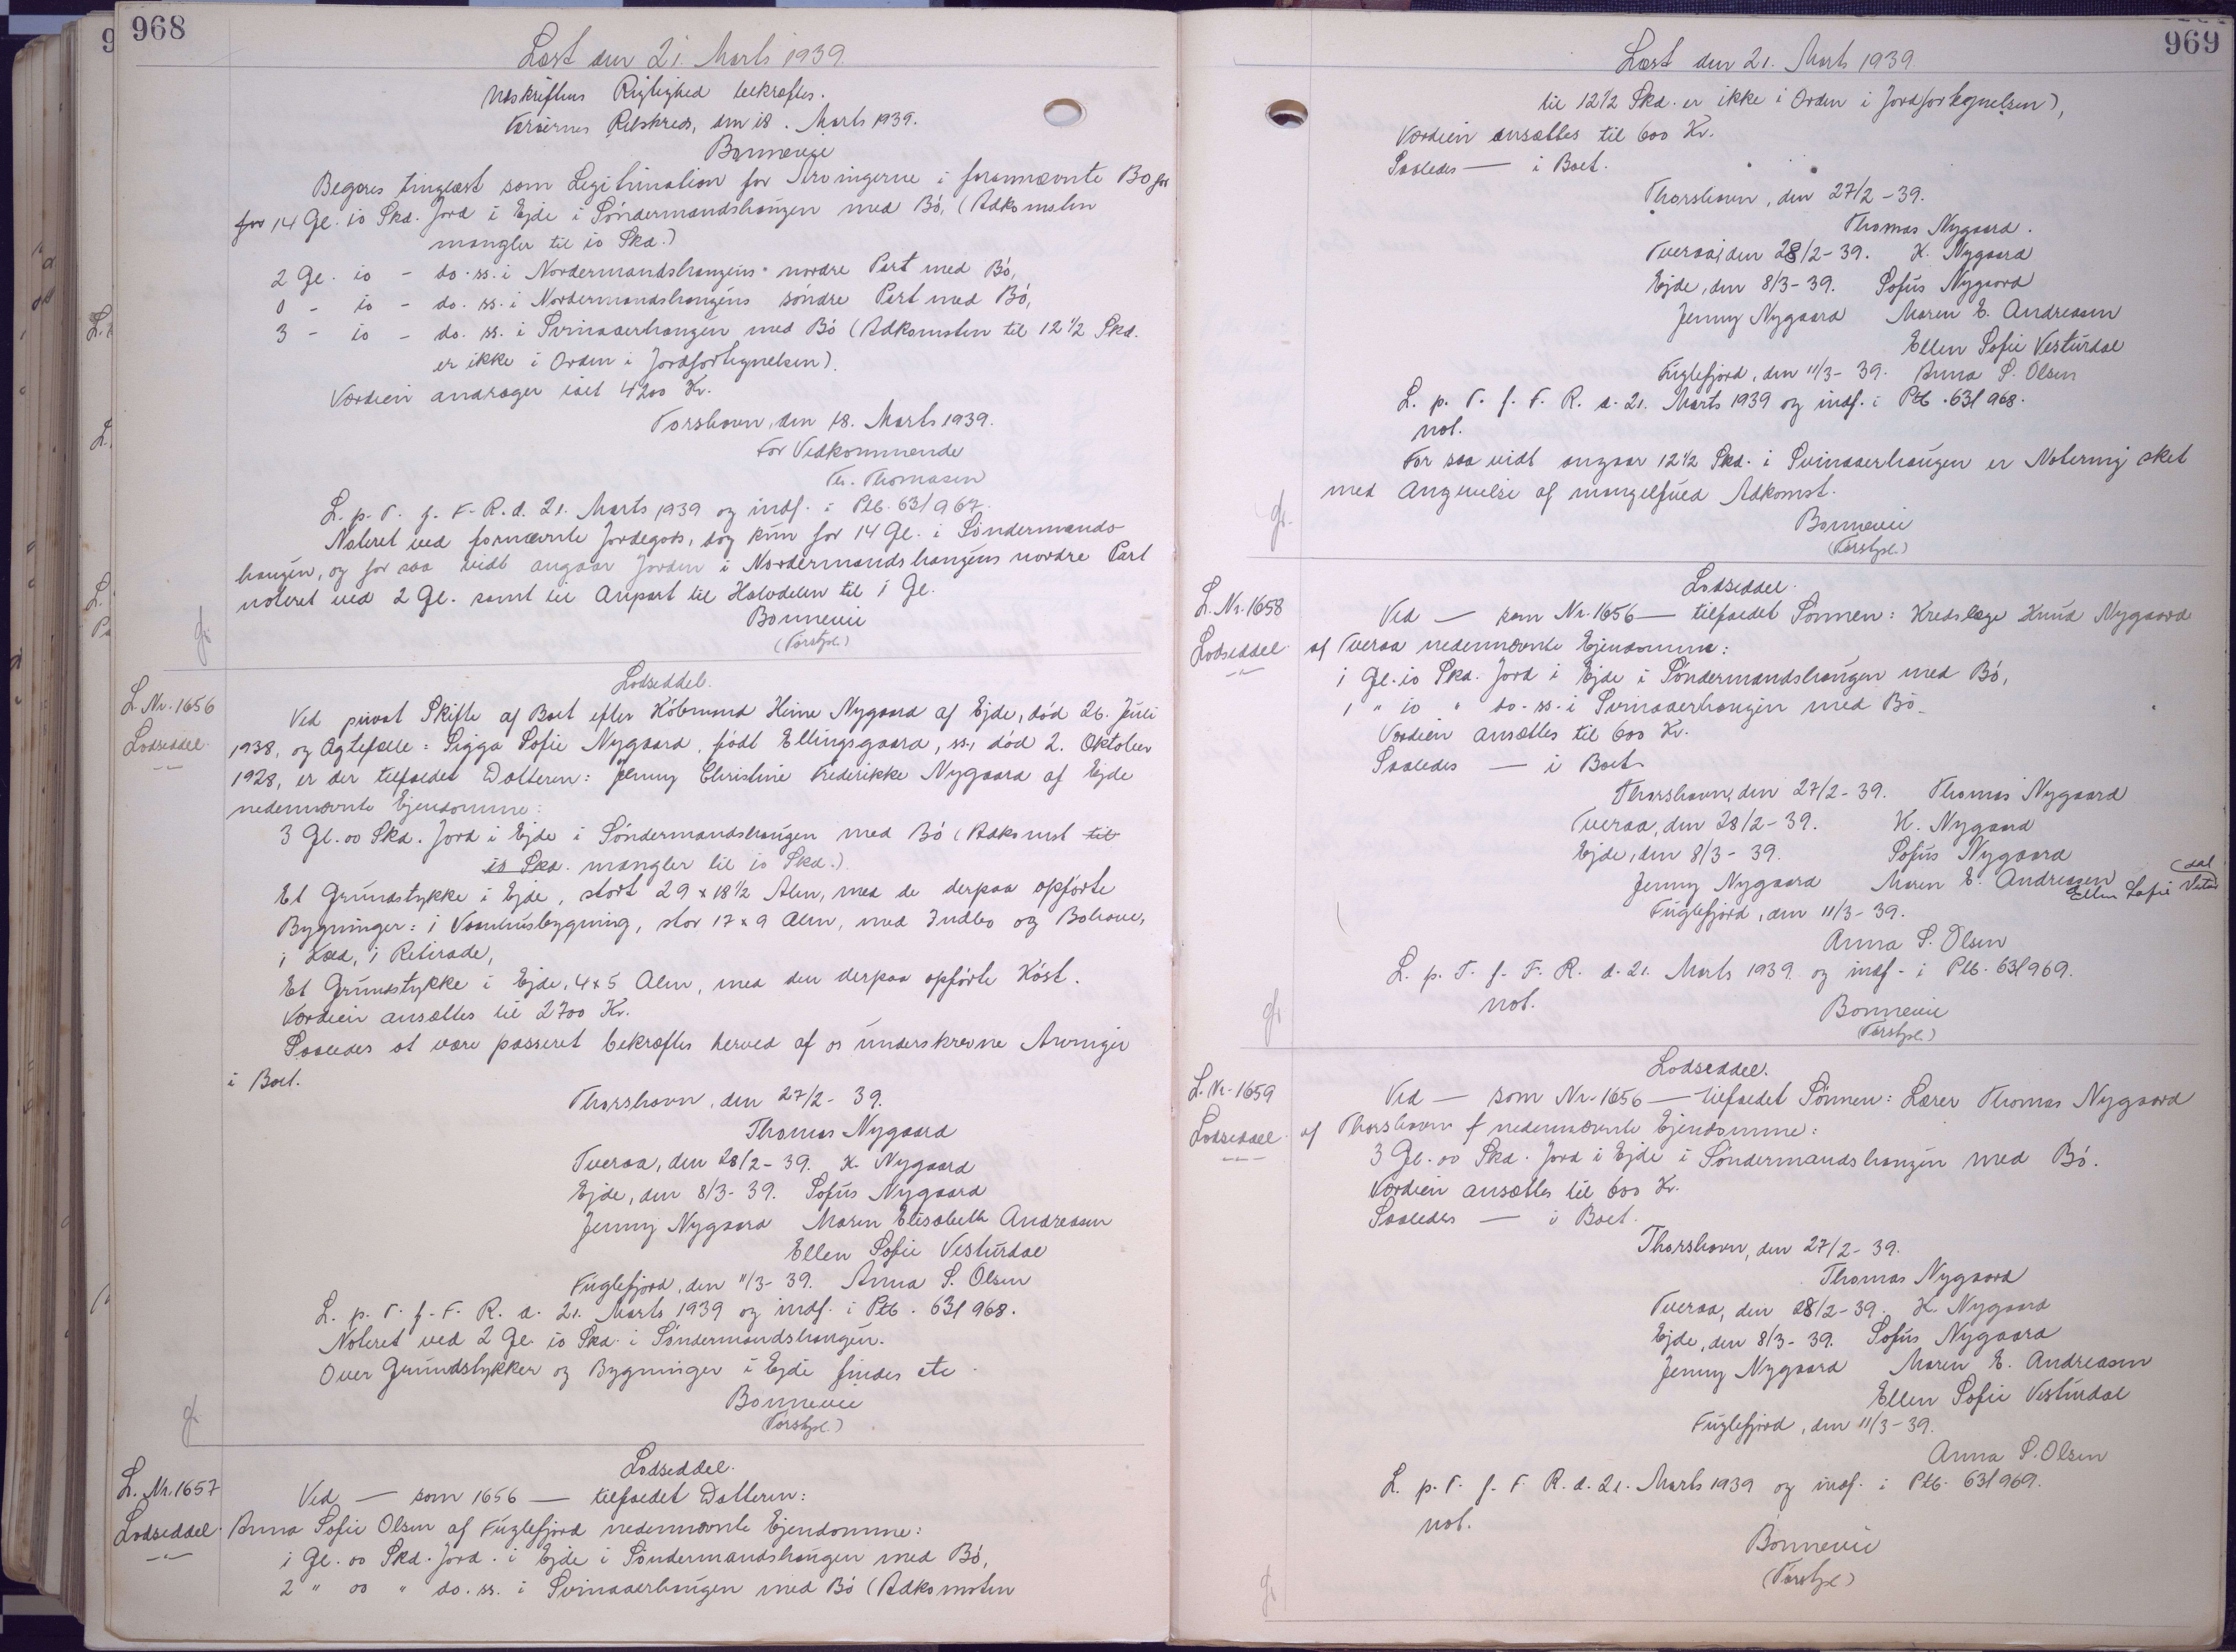 968
Læst den 21. Marts 1939.
Udskriftens Rigtighed bekræftes.
Færøernes Retskreds, den 18. Marts 1939.
Bonnevie
Begæres tinglæst som Legitimation for Arvingerne i forannævnte Bo for
for 14 Gl. 10 Skd. Jord i Ejde i Söndermandshaugen med Bö, (Adkomsten
mangler til 10 Skd.)
2 Gl. 10 - do. ss. i Nordermandshaugens nordre Part med Bö,
0 - 10 - do. ss. i Nordermandshaugens söndre Part med Bö,
3 - 10 - do. ss. i Svinaaerhaugen med Bö (Adkomsten til 12 1/2 Skd.
er ikke i Orden i Jordfortegnelsen).
Værdien andrager ialt 4200 Kr.
Torshavn, den 18. Marts 1939.
For Vedkommende
Th. Thomasen
L. p. T. f. F. R. d. 21. Marts 1939 og indf. i Ptb. 63/967.
Noteret ved fornævnte Jordegods, dog kun for 14 Gl. i Söndermands-
haugen, og for saa vidt angaar Jorden i Nordermandshaugens nordre Part
noteret ved 2 Gl. samt til Anpart til Halvdelen til 1 Gl.
Bonnevie
(Förstgl.)
L. Nr. 1656
Lodseddel.
Lodseddel.
Ved privat Skifte af Boet efter Köbmand Heine Nygaard af Ejde, död 26. Juli
1938, og Ægtefælle: Sigga Sofie Nygaard, födt Ellingsgaard, ss., död 2. Oktober
1928, er der tilfaldet Datteren: Jenny Christine Frederikke Nygaard af Ejde
nedennævnte Ejendomme:
3 Gl. 00 Skd. Jord i Ejde i Söndermandshaugen med Bö (Adkomst til
10 Skd. mangler til 10 Skd.).
Et Grundstykke i Ejde, stort 29 x 18 1/2 Alen, med de derpaa opförte
Bygninger: 1 Vaanhusbygning, stor 17 x 9 Alen, med Indbo og Bohave,
1 Lad, 1 Retirade,
Et Grundstykke i Ejde, 4 x 5 Alen, med den derpaa opförte Köst.
Værdien ansættes til 2700 Kr.
Saaledes at være passeret bekræftes herved af os underskrevne Arvinger
i Boet.
Thorshavn, den 27/2 - 39.
Thomas Nygaard
Tveraa, den 28/2 - 39. K. Nygaard
Ejde, den 8/3 - 39. Sofus Nygaard
Jenny Nygaard Maren Elisabeth Andreasen
Ellen Sofie Vesturdal
Fuglefjord, den 11/3 - 39. Anna S. Olsen
L. p. T. f. F. R. d. 21. Marts 1939 og indf. i Ptb. 63/968.
Noteret ved 2 Gl. 10 Skd. i Söndermandshaugen.
Over Grundstykker og Bygninger i Ejde findes etc.
Bonnevie
(Förstgl.)
L. Nr. 1657
Lodseddel.
Lodseddel.
Ved — som 1656 — tilfaldet Datteren:
Anna Sofie Olsen af Fuglefjord nedennævnte Ejendomme:
1 Gl. 00 Skd. Jord i Ejde i Söndermandshaugen med Bö,
2 " 00 " do. ss. i Svinaaerhaugen med Bö (Adkomsten
969
Læst den 21. Marts 1939
til 12 1/2 Skd. er ikke i Orden i Jordfortegnelsen),
Værdien ansættes til 600 Kr.
Saaledes — i Boet.
Thorshavn, den 27/2 - 39.
Thomas Nygaard.
Tveraa, den 28/2 - 39. K. Nygaard
Ejde, den 8/3 - 39. Sofus Nygaard
Jenny Nygaard Maren E. Andreasen
Ellen Sofie Vesturdal
Fuglefjord, den 11/3 - 39. Anna S. Olsen
L. p. T. f. F. R. d. 21. Marts 1939 og indf. i Ptb. 63/968.
not.
For saa vidt angaar 12 1/2 Skd. i Svinaaerhaugen er Notering sket
med Angivelse af mangelfuld Adkomst.
Bonnevie
(Förstgl.)
L. Nr. 1658
Lodseddel
Lodseddel.
Ved — som Nr. 1656 — tilfaldet Sönnen: Kredslæge Knud Nygaard
af Tveraa nedennævnte Ejendomme:
1 Gl. 10 Skd. Jord i Ejde i Söndermandshaugen med Bö,
1 " 10 " do. ss. i Svinaaerhaugen med Bö.
Værdien ansættes til 600 Kr.
Saaledes — i Boet.
Thorshavn, den 27/2 - 39. Thomas Nygaard
Tveraa, den 28/2 - 39. K. Nygaard
Ejde, den 8/3 - 39. Sofus Nygaard
Jenny Nygaard Maren E. Andreasen Ellen Sofie Vestur(dal
Fuglefjord, den 11/3 - 39.
Anna S. Olsen
L. p. T. f. F. R. d. 21. Marts 1939 og indf. i Ptb. 63/969.
not.
Bonnevie
(Förstgl.)
L. Nr. 1659
Lodseddel.
Lodseddel.
Ved — som Nr. 1656 — tilfaldet Sönnen: Lærer Thomas Nygaard
af Thorshavn f nedennævnte Ejendomme:
3 Gl. 00 Skd. Jord i Ejde i Söndermandshaugen med Bö.
Værdien ansættes til 600 Kr.
Saaledes — i Boet.
Thorshavn, den 27/2 - 39.
Thomas Nygaard
Tveraa, den 28/2 - 39. K. Nygaard
Ejde, den 8/3 - 39. Sofus Nygaard
Jenny Nygaard Maren E. Andreasen
Ellen Sofie Vesturdal
Fuglefjord, den 11/3 - 39.
Anna S. Olsen
L. p. T. f. F. R. d. 21. Marts 1939 og indf. i Ptb. 63/969.
not.
Bonnevie
(Förstgl.)